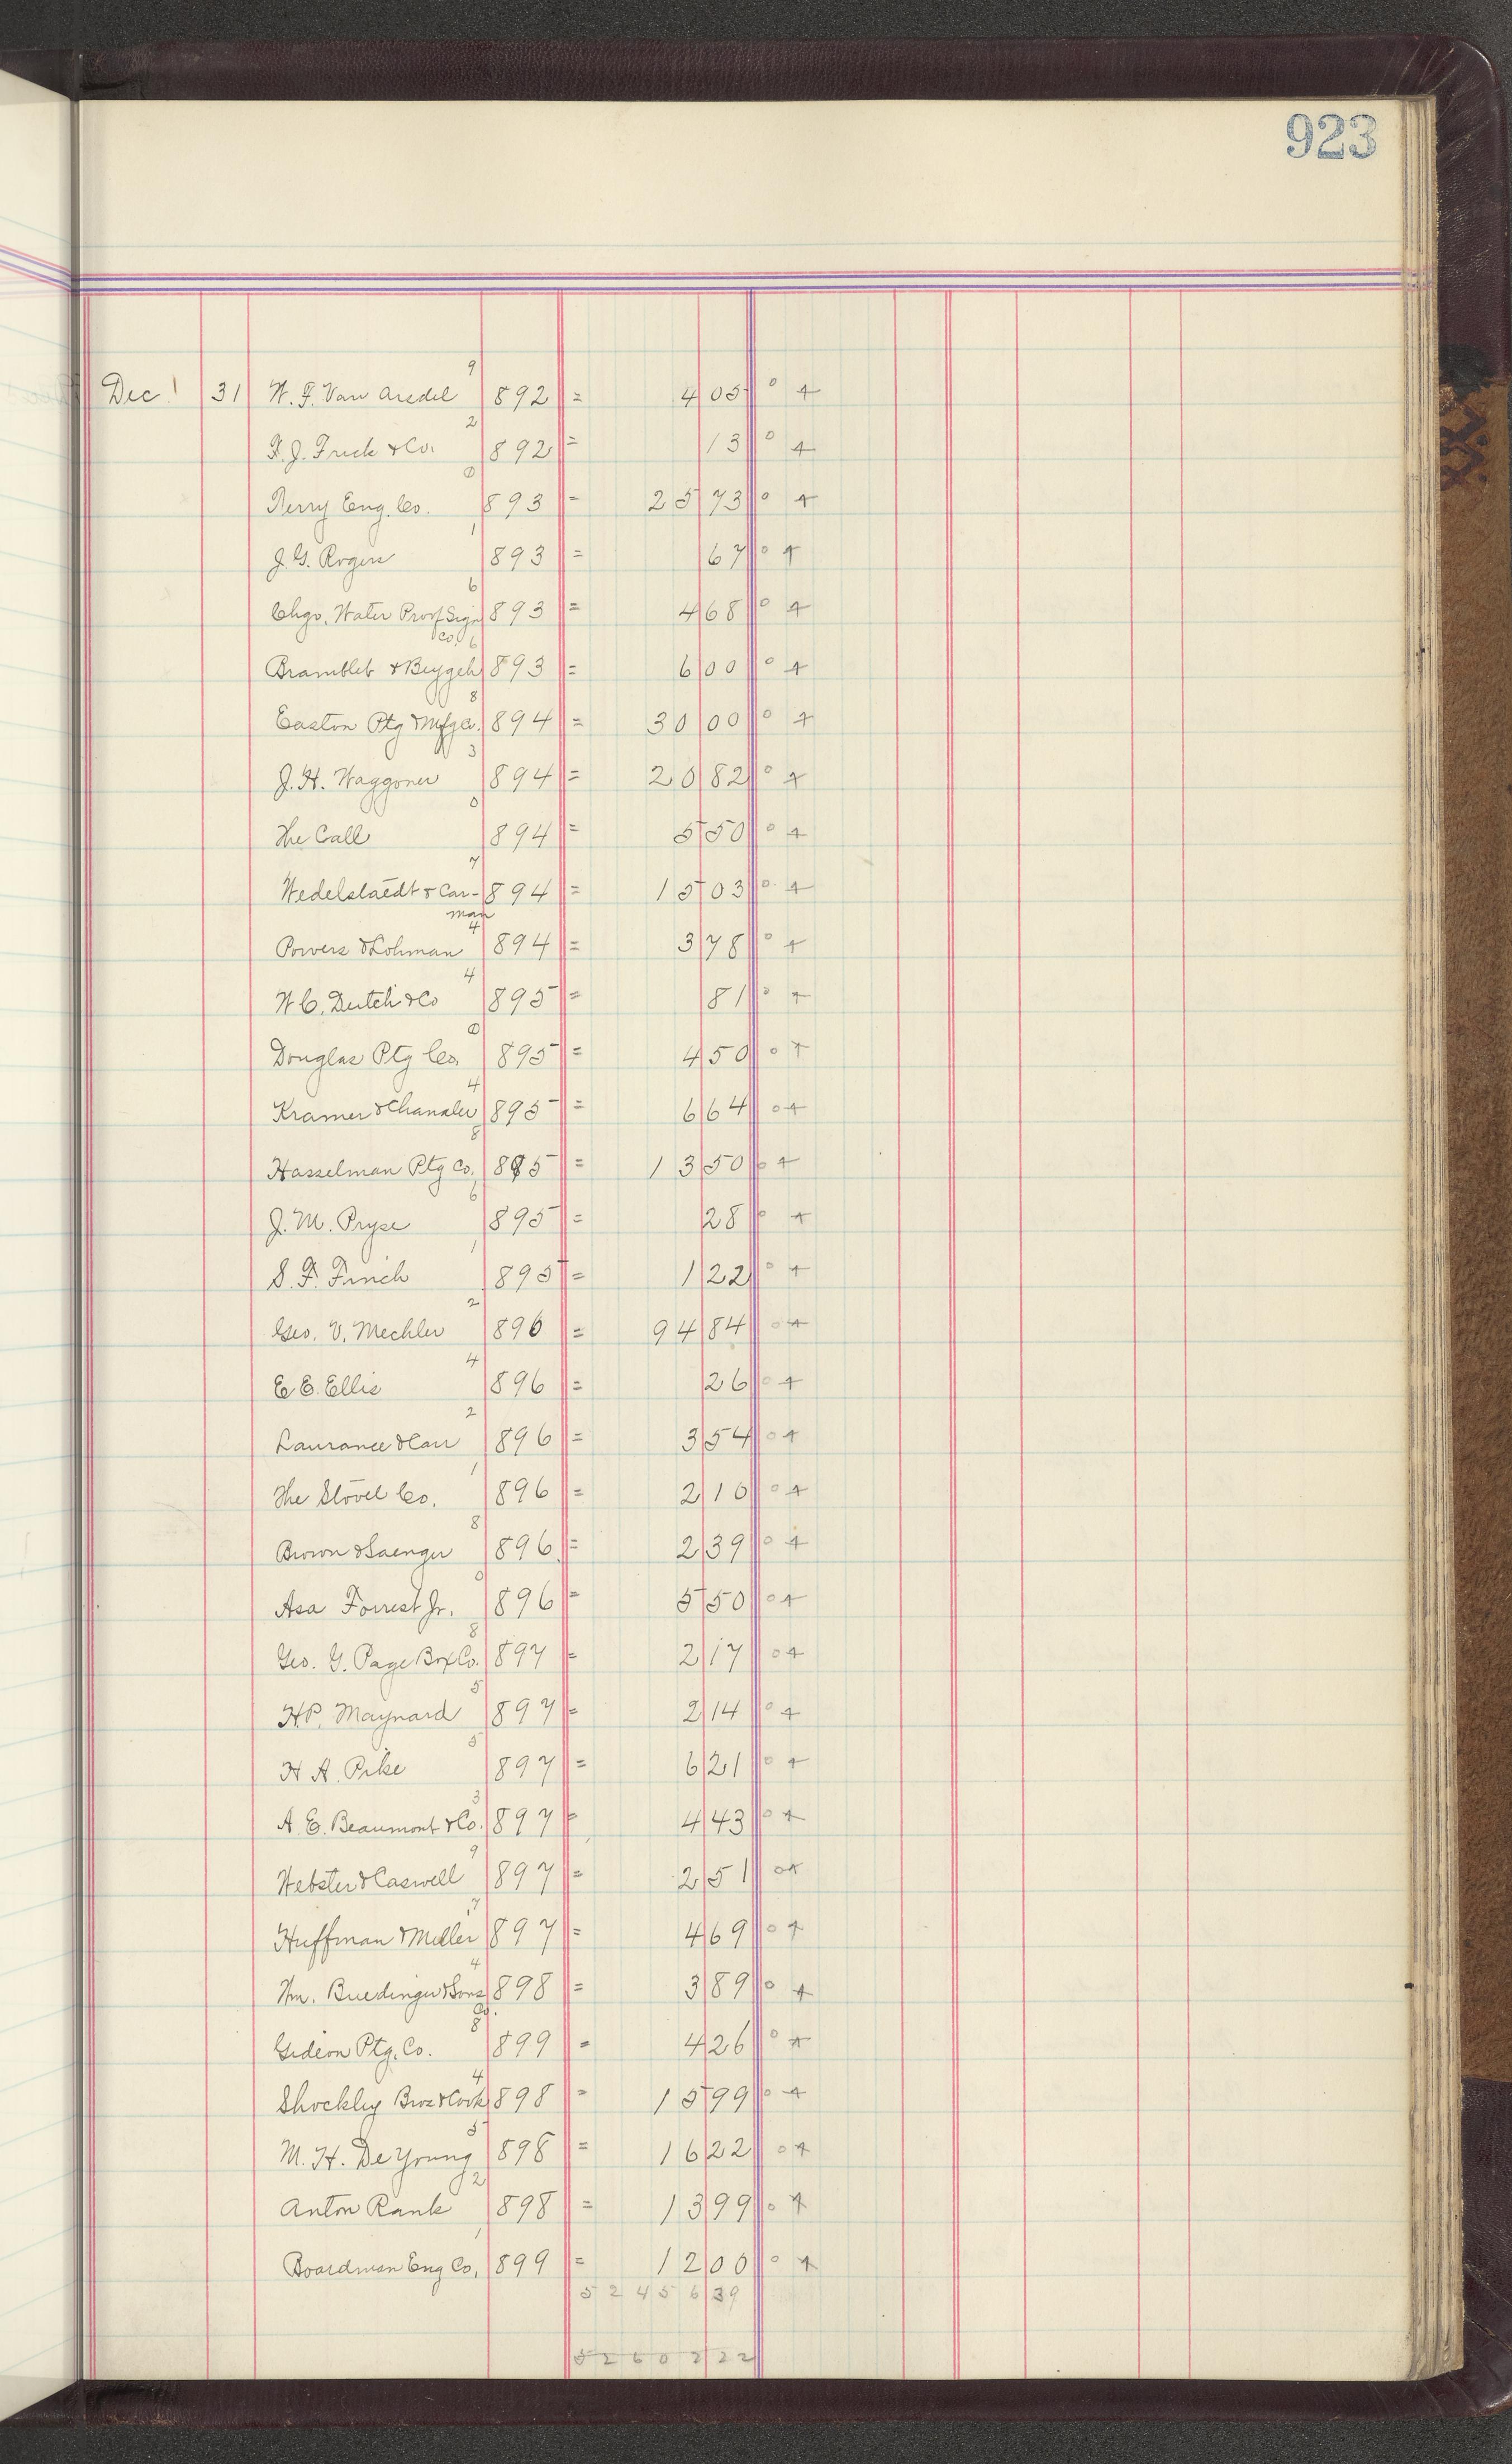 923
Dec. 31 W. F. Van Arsdel 9 892 = 4 05 ° +
F. J. Frick & Co. 2 892 = 13 ° +
Perry Eng. Co. 0 893 = 25 73 ° +
J. G. Rogers 1 893 = 67 ° +
Chgo. Water Proof Sign Co. 6 893 = 4 68 ° +
Bramblet & Beygeh 6 893 = 6 00 ° +
Easton Ptg & Mfg Co. 8 894 = 30 00 ° +
J. H. Waggoner 3 894 = 20 82 ° +
The Call 0 894 = 5 50 ° +
Wedelstaedt & Carman 7 894 = 15 03 ° +
Powers & Lohman 4 894 = 3 78 ° +
W C. Dutch & Co 4 895 = 81 ° +
Douglas Ptg Co. 0 895 = 4 50 ° +
Kramer & Chandler 4 895 = 6 64 ° +
Hasselman Ptg Co. 8 895 = 13 50 ° +
J. M. Pryse 6 895 = 28 ° +
S. F. Finch 1 895 = 1 22 ° +
Geo. V. Mechler 2 896 = 94 84 ° +
E E. Ellis 4 896 = 26 ° +
Laurance & Carr 2 896 = 3 54 ° +
The Stovel Co. 1 896 = 2 10 ° +
Brown & Saenger 8 896 = 2 39 ° +
Asa Forrest Jr. 0 896 = 5 50 ° +
Geo. G. Page Box Co. 8 897 = 2 17 ° +
H.P. Maynard 5 897 = 2 14 ° +
H A. Pike 5 897 = 6 21 ° +
A. E. Beaumont & Co. 3 897 = 4 43 ° +
Webster & Caswell 9 897 = 2 51 ° +
Huffman & Miller 7 897 = 4 69 ° +
Wm. Buedinger & Sons Co. 4 898 = 3 89 ° +
Gideon Ptg. Co. 8 899 = 4 26 ° +
Shockley Bros & Cook 4 898 = 15 99 ° +
M. H. De Young 5 898 = 16 22 ° +
Anton Rank 2 898 = 13 99 ° +
Boardman Eng Co. 1 899 = 12 00 ° +
52456 39
52602 22